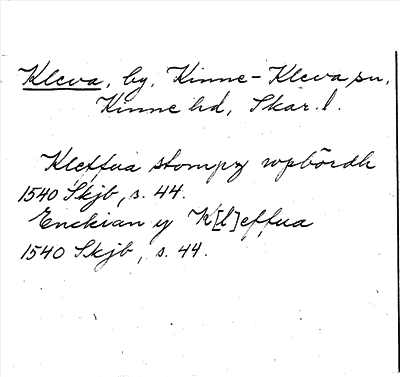 Kleva, by, Kinne-Kleva sn,
Kinne hd, Skar. l.
Kleffua stompz wpbördh
1540 Skjb, s. 44.
Enckian y K[l]effua
1540 Skjb, s. 44.